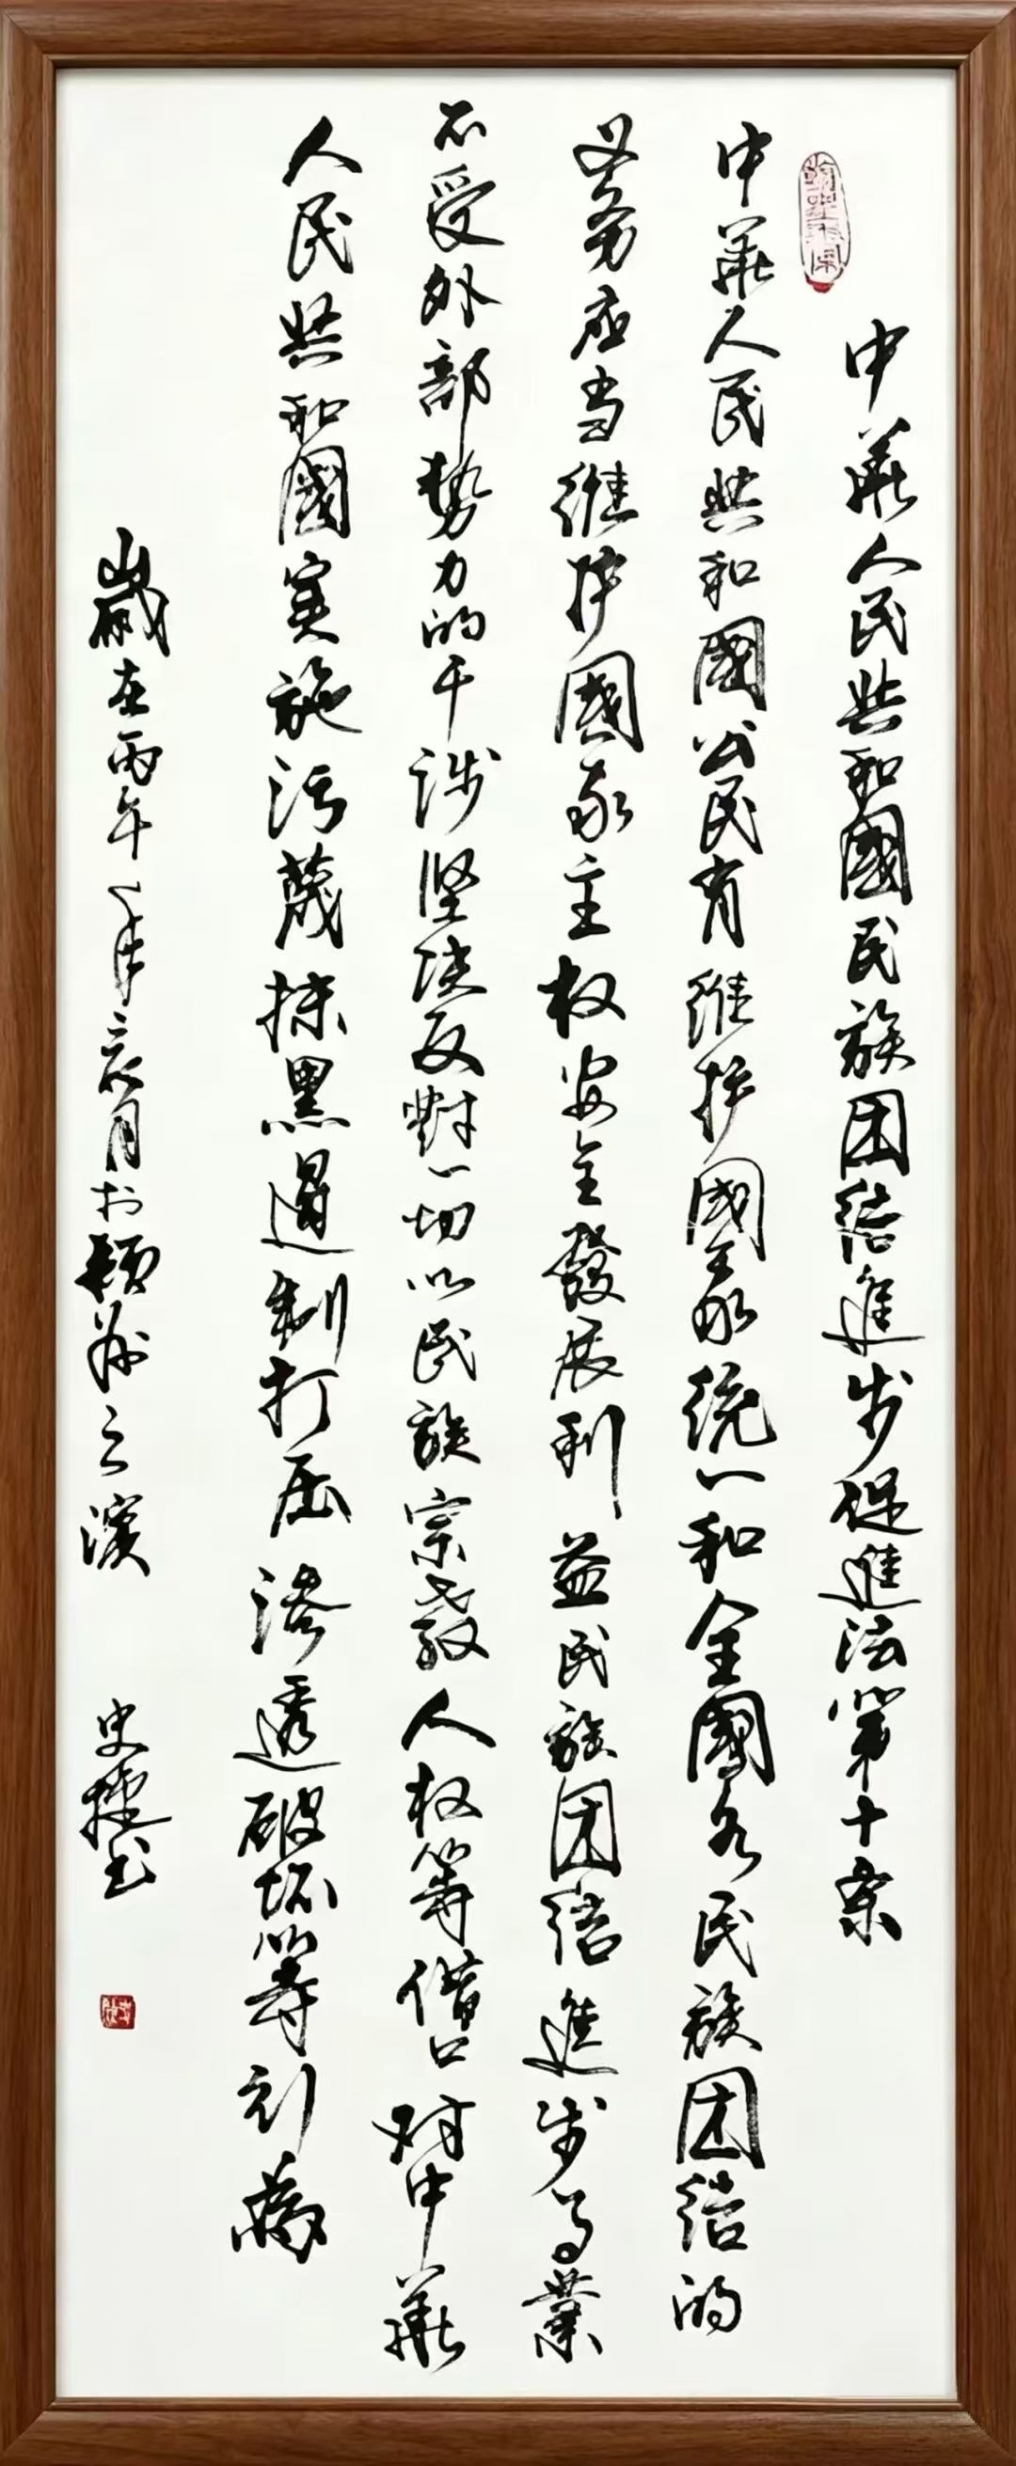 中華人民共和國民族团结進步促進法第十条
中華人民共和國公民有維护國家统一和全國各民族团结的
义务应当維护國家主权安全發展利益民族团结進步事業
不受外部势力的干涉坚决反對一切以民族宗教人权等借口对中華
人民共和國实施污蔑抹黑遏制打压渗透破坏等行為
歲在丙午年 月於颍州之濱
史捷书